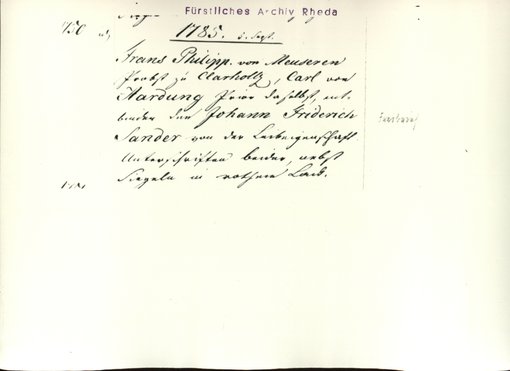 Fürstliches Archiv Rheda
750
1785. 5. Sept.
Franz Philipp von Meuseren
Probst zu Clarholtz, Carl von
Hardung Prior daselbst, ent-
binden den Johann Friderich
Sander von der Leibeigenschaft.
Unterschriften beider, nebst
Siegeln in rothem Lack.